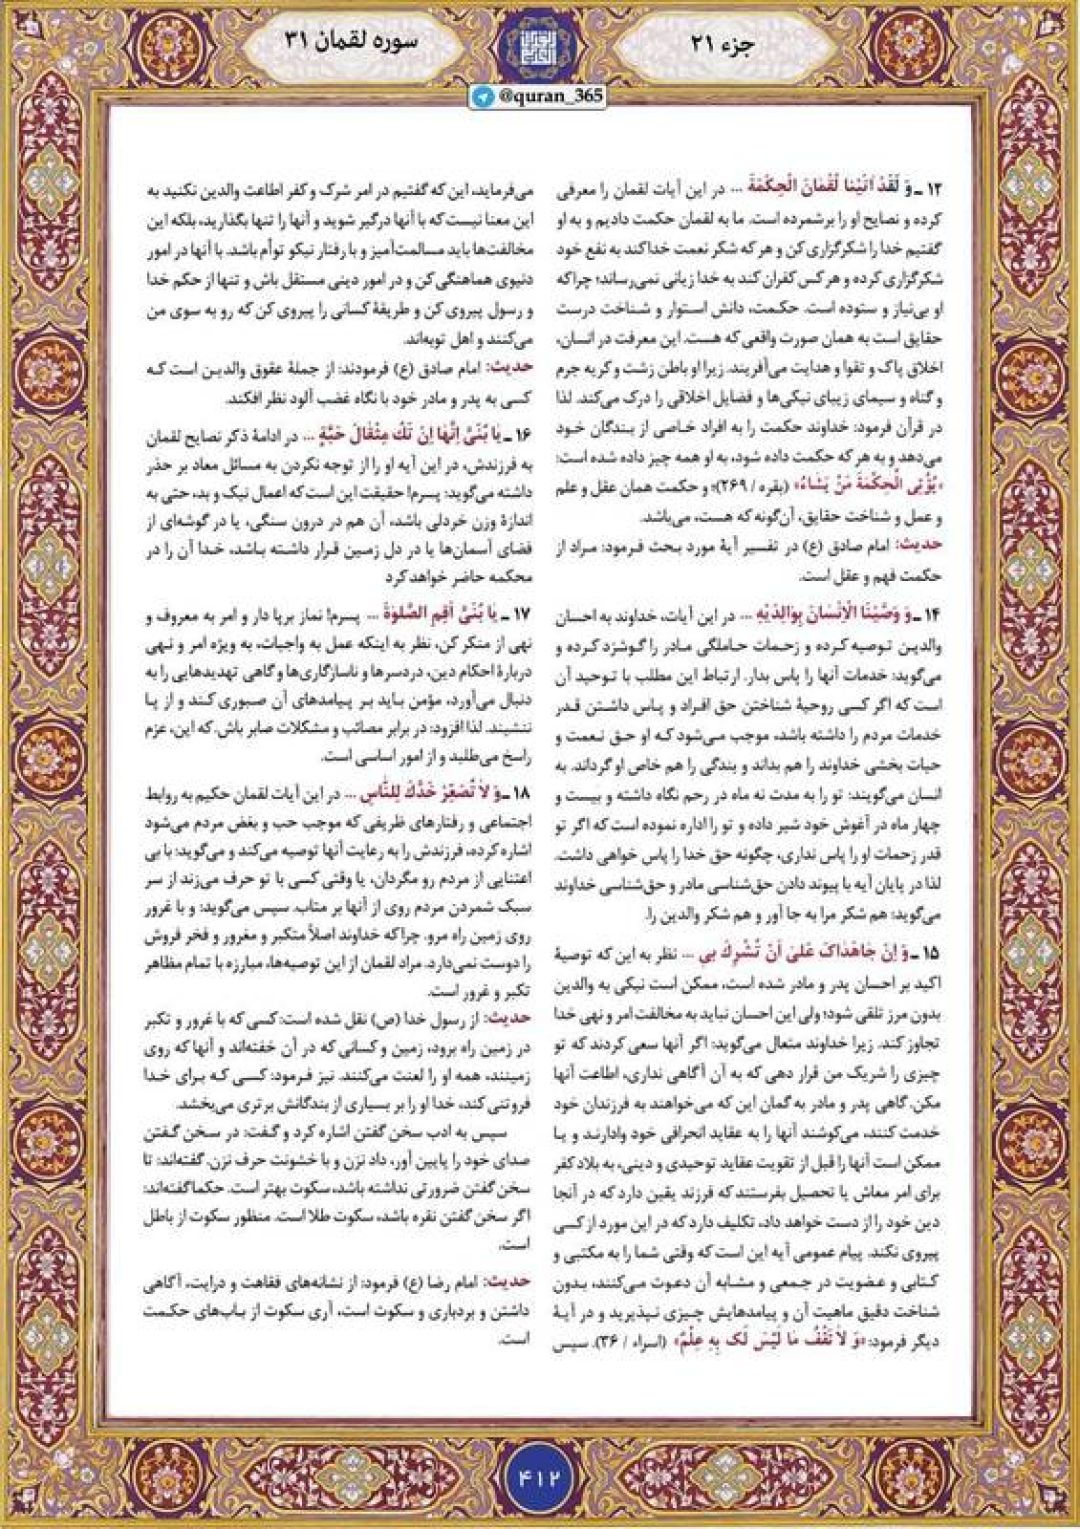 جزء ۲۱
سوره لقمان ۳۱
@quran_365
۱۲ ـ وَ لَقَدْ آتَيْنا لُقْمانَ الْحِكْمَةَ ... در این آیات لقمان را معرفی
کرده و نصایح او را برشمرده است. ما به لقمان حکمت دادیم و به او
گفتیم خدا را شکرگزاری کن و هر که شکر نعمت خدا کند به نفع خود
شکرگزاری کرده و هر کس کفران کند به خدا زیانی نمی‌رساند؛ چرا که
او بی‌نیاز و ستوده است. حکمت، دانش استوار و شناخت درست
حقایق است به همان صورت واقعی که هست. این معرفت در انسان،
اخلاق پاک و تقوا و هدایت می‌آفریند. زیرا او باطن زشت و کریه جرم
و گناه و سیمای زیبای نیکی‌ها و فضایل اخلاقی را درک می‌کند. لذا
در قرآن فرمود: خداوند حکمت را به افراد خاصی از بندگان خود
می‌دهد و به هر که حکمت داده شود، به او همه چیز داده شده است:
«يُؤْتِي الْحِكْمَةَ مَنْ يَشاءُ» (بقره / ۲۶۹)؛ و حکمت همان عقل و علم
و عمل و شناخت حقایق، آن‌گونه که هست، می‌باشد.
حدیث: امام صادق (ع) در تفسیر آیهٔ مورد بحث فرمود: مراد از
حکمت فهم و عقل است.
۱۴ ـ وَ وَصَّيْنَا الْإِنْسانَ بِوالِدَيْهِ ... در این آیات، خداوند به احسان
والدین توصیه کرده و زحمات حاملگی مادر را گوشزد کرده و
می‌گوید: خدمات آنها را پاس بدار. ارتباط این مطلب با توحید آن
است که اگر کسی روحیهٔ شناختن حق افراد و پاس داشتن قدر
خدمات مردم را داشته باشد، موجب می‌شود که او حق نعمت و
حیات بخشی خداوند را هم بداند و بندگی را هم خاص او گرداند. به
انسان می‌گویند: تو را به مدت نه ماه در رحم نگاه داشته و بیست و
چهار ماه در آغوش خود شیر داده و تو را اداره نموده است که اگر تو
قدر زحمات او را پاس نداری، چگونه حق خدا را پاس خواهی داشت.
لذا در پایان آیه با پیوند دادن حق‌شناسی مادر و حق‌شناسی خداوند
می‌گوید: هم شکر مرا به جا آور و هم شکر والدین را.
۱۵ ـ وَ إِنْ جاهَداكَ عَلىٰ أَنْ تُشْرِكَ بِي ... نظر به این که توصیهٔ
اکید بر احسان پدر و مادر شده است، ممکن است نیکی به والدین
بدون مرز تلقی شود؛ ولی این احسان نباید به مخالفت امر و نهی خدا
تجاوز کند. زیرا خداوند متعال می‌گوید: اگر آنها سعی کردند که تو
چیزی را شریک من قرار دهی که به آن آگاهی نداری، اطاعت آنها
مکن. گاهی پدر و مادر به گمان این که می‌خواهند به فرزندان خود
خدمت کنند، می‌کوشند آنها را به عقاید انحرافی خود وادارند و یا
ممکن است آنها را قبل از تقویت عقاید توحیدی و دینی، به بلاد کفر
برای امر معاش یا تحصیل بفرستند که فرزند یقین دارد که در آنجا
دین خود را از دست خواهد داد، تکلیف دارد که در این مورد از کسی
پیروی نکند. پیام عمومی آیه این است که وقتی شما را به مکتبی و
کتابی و عضویت در جمعی و مشابه آن دعوت می‌کنند، بدون
شناخت دقیق ماهیت آن و پیامدهایش چیزی نپذیرید و در آیهٔ
دیگر فرمود: «وَ لا تَقْفُ ما لَيْسَ لَكَ بِهِ عِلْمٌ» (اسراء / ۳۶). سپس
می‌فرماید، این که گفتیم در امر شرک و کفر اطاعت والدین نکنید به
این معنا نیست که با آنها درگیر شوید و آنها را تنها بگذارید، بلکه این
مخالفت‌ها باید مسالمت‌آمیز و با رفتار نیکو توأم باشد. با آنها در امور
دنیوی هماهنگی کن و در امور دینی مستقل باش و تنها از حکم خدا
و رسول پیروی کن و طریقهٔ کسانی را پیروی کن که رو به سوی من
می‌کنند و اهل توبه‌اند.
حدیث: امام صادق (ع) فرمودند: از جملهٔ عقوق والدین است که
کسی به پدر و مادر خود با نگاه غضب آلود نظر افکند.
۱۶ ـ يا بُنَيَّ إِنَّها إِنْ تَكُ مِثْقالَ حَبَّةٍ ... در ادامهٔ ذکر نصایح لقمان
به فرزندش، در این آیه او را از توجه نکردن به مسائل معاد بر حذر
داشته می‌گوید: پسرم! حقیقت این است که اعمال نیک و بد، حتی به
اندازهٔ وزن خردلی باشد، آن هم در درون سنگی، یا در گوشه‌ای از
فضای آسمان‌ها یا در دل زمین قرار داشته باشد، خدا آن را در
محکمه حاضر خواهد کرد
۱۷ ـ يا بُنَيَّ أَقِمِ الصَّلوٰةَ ... پسرم! نماز برپا دار و امر به معروف و
نهی از منکر کن، نظر به اینکه عمل به واجبات، به ویژه امر و نهی
دربارهٔ احکام دین، دردسرها و ناسازگاری‌ها و گاهی تهدیدهایی را به
دنبال می‌آورد، مؤمن باید بر پیامدهای آن صبوری کند و از پا
ننشیند. لذا افزود: در برابر مصائب و مشکلات صابر باش. که این، عزم
راسخ می‌طلبد و از امور اساسی است.
۱۸ ـ وَ لا تُصَعِّرْ خَدَّكَ لِلنّاسِ ... در این آیات لقمان حکیم به روابط
اجتماعی و رفتارهای ظریفی که موجب حب و بغض مردم می‌شود
اشاره کرده، فرزندش را به رعایت آنها توصیه می‌کند و می‌گوید: با بی
اعتنایی از مردم رو مگردان، یا وقتی کسی با تو حرف می‌زند از سر
سبک شمردن مردم روی از آنها بر متاب. سپس می‌گوید: و با غرور
روی زمین راه مرو. چرا که خداوند اصلاً متکبر و مغرور و فخر فروش
را دوست نمی‌دارد. مراد لقمان از این توصیه‌ها، مبارزه با تمام مظاهر
تکبر و غرور است.
حدیث: از رسول خدا (ص) نقل شده است: کسی که با غرور و تکبر
در زمین راه برود، زمین و کسانی که در آن خفته‌اند و آنها که روی
زمینند، همه او را لعنت می‌کنند. نیز فرمود: کسی که برای خدا
فروتنی کند، خدا او را بر بسیاری از بندگانش برتری می‌بخشد.
سپس به ادب سخن گفتن اشاره کرد و گفت: در سخن گفتن
صدای خود را پایین آور، داد نزن و با خشونت حرف نزن. گفته‌اند: تا
سخن گفتن ضرورتی نداشته باشد، سکوت بهتر است. حکما گفته‌اند:
اگر سخن گفتن نقره باشد، سکوت طلا است. منظور سکوت از باطل
است.
حدیث: امام رضا (ع) فرمود: از نشانه‌های فقاهت و درایت، آگاهی
داشتن و بردباری و سکوت است، آری سکوت از باب‌های حکمت
است.
۴۱۲